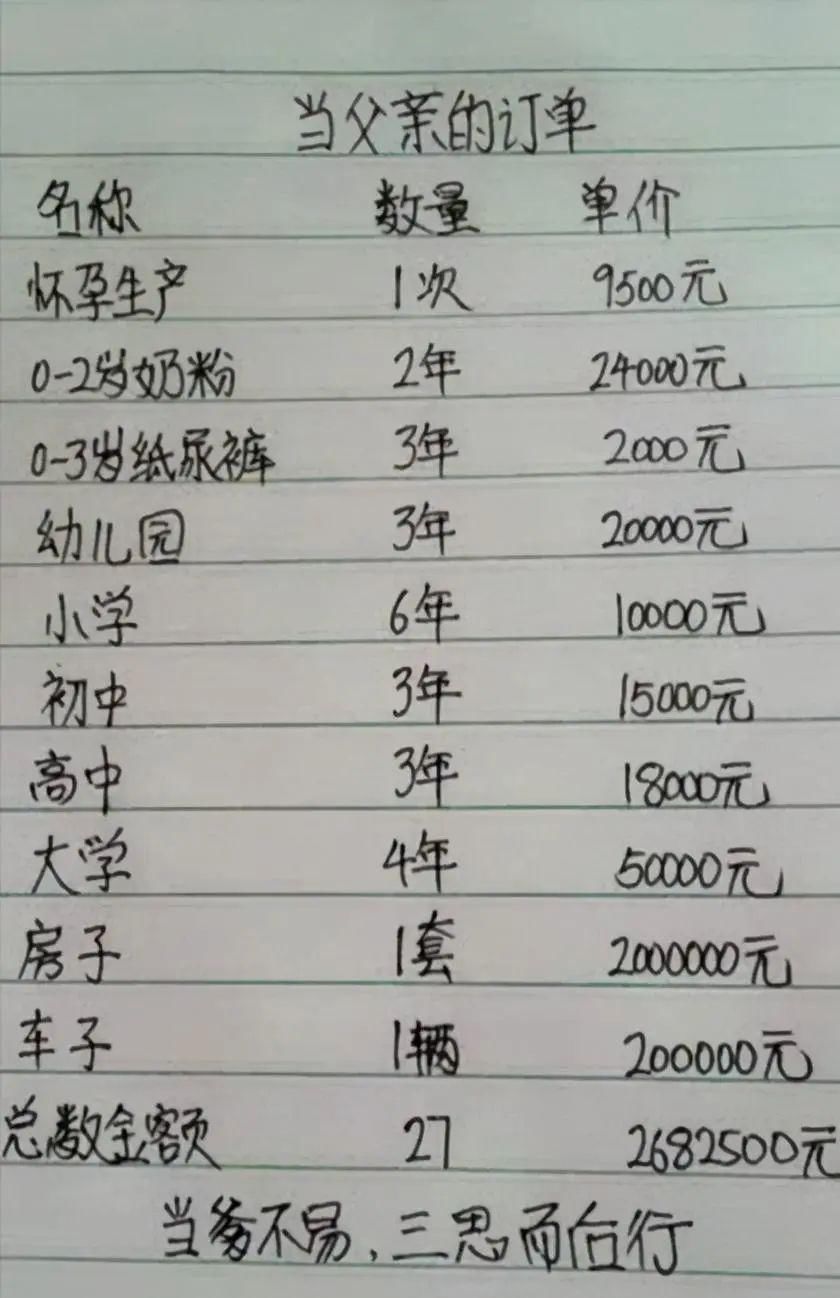 当父亲的订单
名称 数量 单价
怀孕生产 1次 9500元
0-2岁奶粉 2年 24000元
0-3岁纸尿裤 3年 2000元
幼儿园 3年 20000元
小学 6年 10000元
初中 3年 15000元
高中 3年 18000元
大学 4年 50000元
房子 1套 2000000元
车子 1辆 200000元
总数金额 27 2682500元
当爹不易、三思而后行